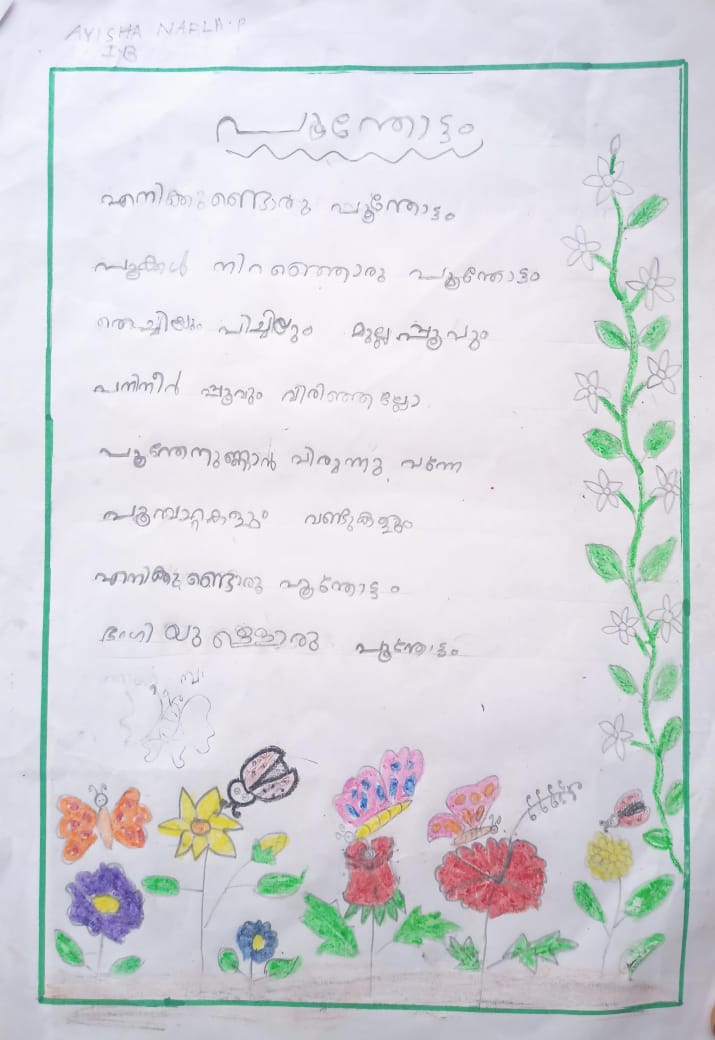 AYISHA NAFLA.P
I B
പൂന്തോട്ടം
എനിക്കുണ്ടൊരു പൂന്തോട്ടം
പൂക്കൾ നിറഞ്ഞൊരു പൂന്തോട്ടം
തെച്ചിയും പിച്ചിയും മുല്ലപ്പൂവും
പനിനീർ പ്പൂവും വിരിഞ്ഞല്ലോ
പൂന്തേനുണ്ണാൻ വിരുന്നു വന്നേ
പൂമ്പാറ്റകളും വണ്ടുകളും
എനിക്കുണ്ടൊരു പൂന്തോട്ടം
ഭംഗിയുള്ളൊരു പൂന്തോട്ടം